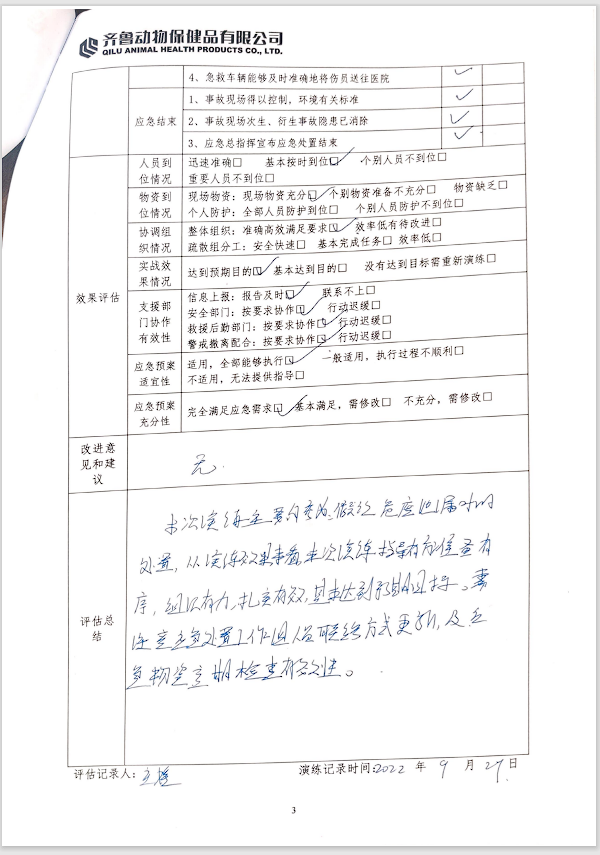 齐鲁动物保健品有限公司
QILU ANIMAL HEALTH PRODUCTS CO., LTD.
4、急救车辆能够及时准确地将伤员送往医院 ✓
应急结束
1、事故现场得以控制，环境有关标准 ✓
2、事故现场次生、衍生事故隐患已消除 ✓
3、应急总指挥宣布应急处置结束 ✓
效果评估
人员到位情况
迅速准确□ 基本按时到位☑ 个别人员不到位□
重要人员不到位□
物资到位情况
现场物资：现场物资充分☑ 个别物资准备不充分□ 物资缺乏□
个人防护：全部人员防护到位□ 个别人员防护不到位□
协调组织情况
整体组织：准确高效满足要求☑ 效率低有待改进□
疏散组分工：安全快速□ 基本完成任务□ 效率低□
实战效果情况
达到预期目的☑ 基本达到目的□ 没有达到目标需重新演练□
支援部门协作有效性
信息上报：报告及时☑ 联系不上□
安全部门：按要求协作☑ 行动迟缓□
救援后勤部门：按要求协作☑ 行动迟缓□
警戒撤离配合：按要求协作☑ 行动迟缓□
应急预案适宜性
适用，全部能够执行☑ 一般适用，执行过程不顺利□
不适用，无法提供指导□
应急预案充分性
完全满足应急需求☑ 基本满足，需修改□ 不充分，需修改□
改进意见和建议
无.
评估总结
本次演练主要内容为
处置，从演练效果来看，本次演练指导有方准备有
序，组织有力，扎实有效，基本达到预期目标。需
注意应急处置工作组人员联络方式更新，及应
急物资定期检查有效性。
评估记录人：
演练记录时间:2022 年 9 月 27 日
3